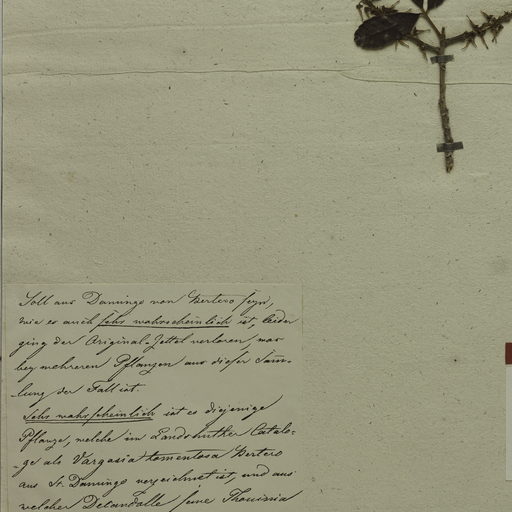 Soll aus Domingo von Bertero seyn,
wie es auch sehr wahrscheinlich ist, leider
ging der Original-Zettel verloren, was
bey mehreren Pflanzen aus dieser Samm-
lung der Fall ist.
Sehr wahrscheinlich ist es diejenige
Pflanze, welche im Landshuther Catalo-
ge als Vargasia tomentosa Bertero
aus St. Domingo verzeichnet ist, und aus
welcher Decandolle seine Thouinia